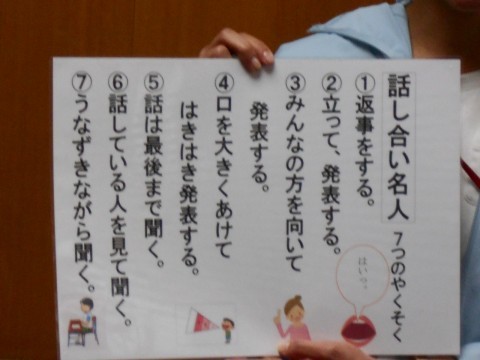 話し合い名人 7つのやくそく
①返事をする。
②立って、発表する。
③みんなの方を向いて
発表する。
④口を大きくあけて
はきはき発表する。
⑤話は最後まで聞く。
⑥話している人を見て聞く。
⑦うなずきながら聞く。
はいっ。